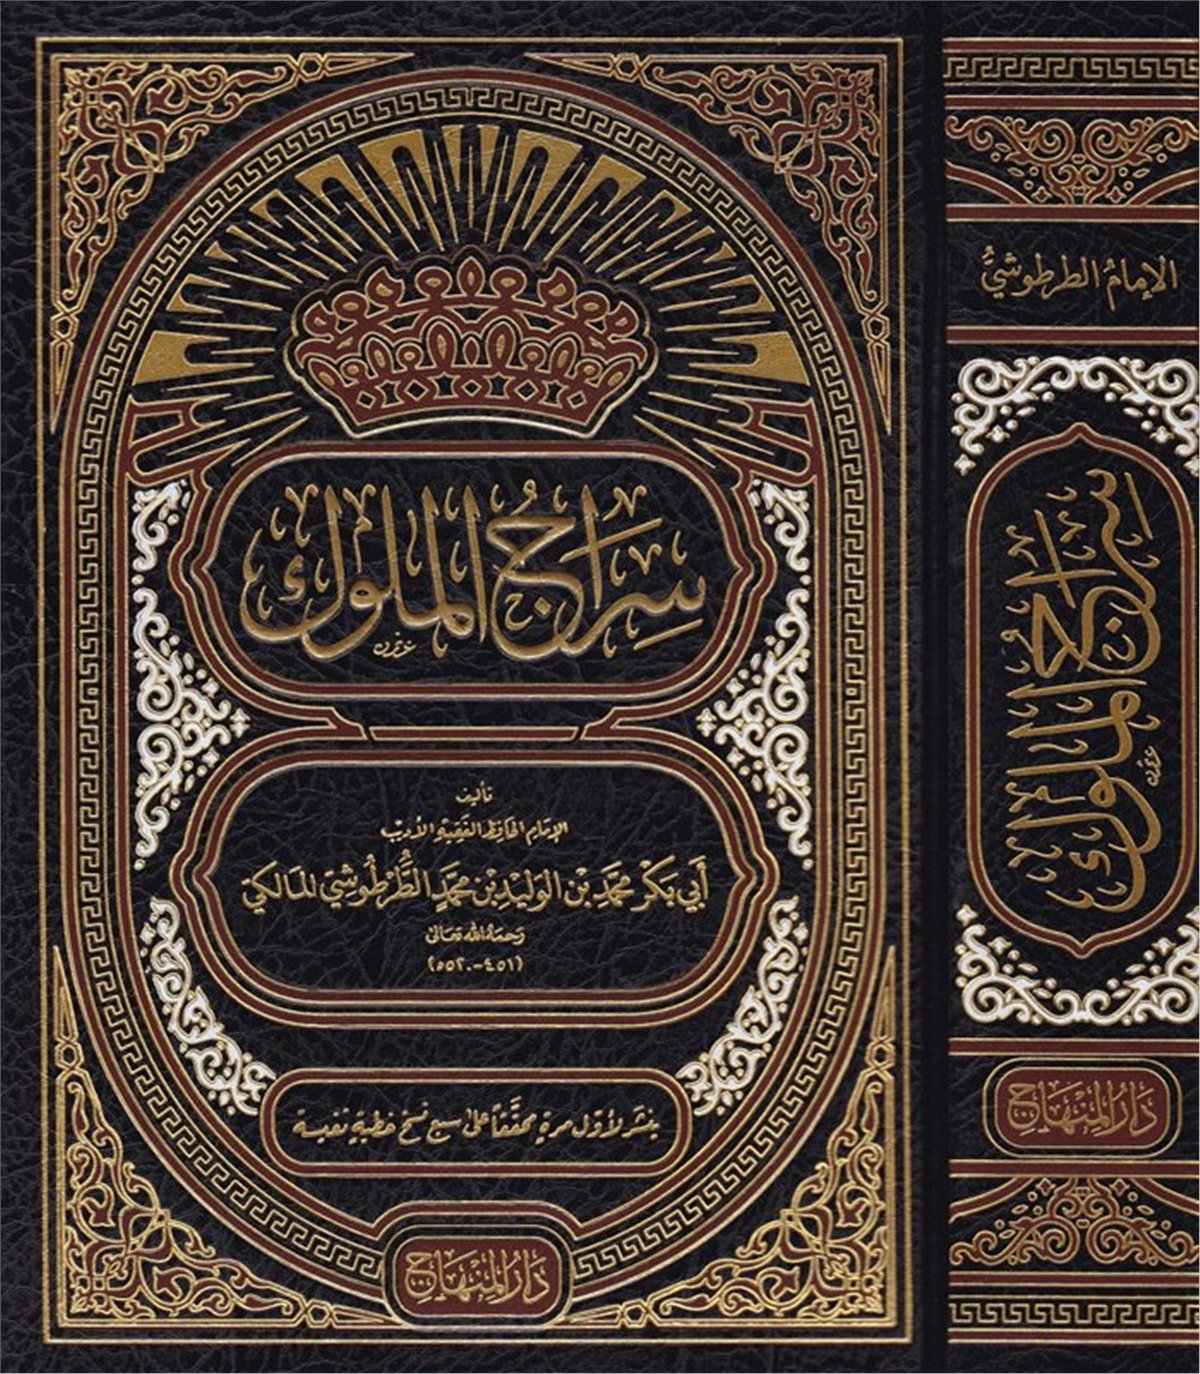 سِرَاجُ الملُوك
تأليف
الإمَام الحَافِظ الفَقِيهِ الأَدِيبِ
أَبِي بَكْر محمَّد بْن الوَليْد بْن محمَّدٍ الطُّرْطُوشيّ المَالِكيّ
رَحمَهُ الله تعَالىٰ
(٤٥١-٥٥٢٠)
ينشر لأوّل مرة محقَّقاً على سبع نسخ خطيةٍ نفيسة
دَارُ المِنْهَاج
الإمَامُ الطرطوشيُّ
سِرَاجُ الملُوك
دَارُ المِنْهَاج